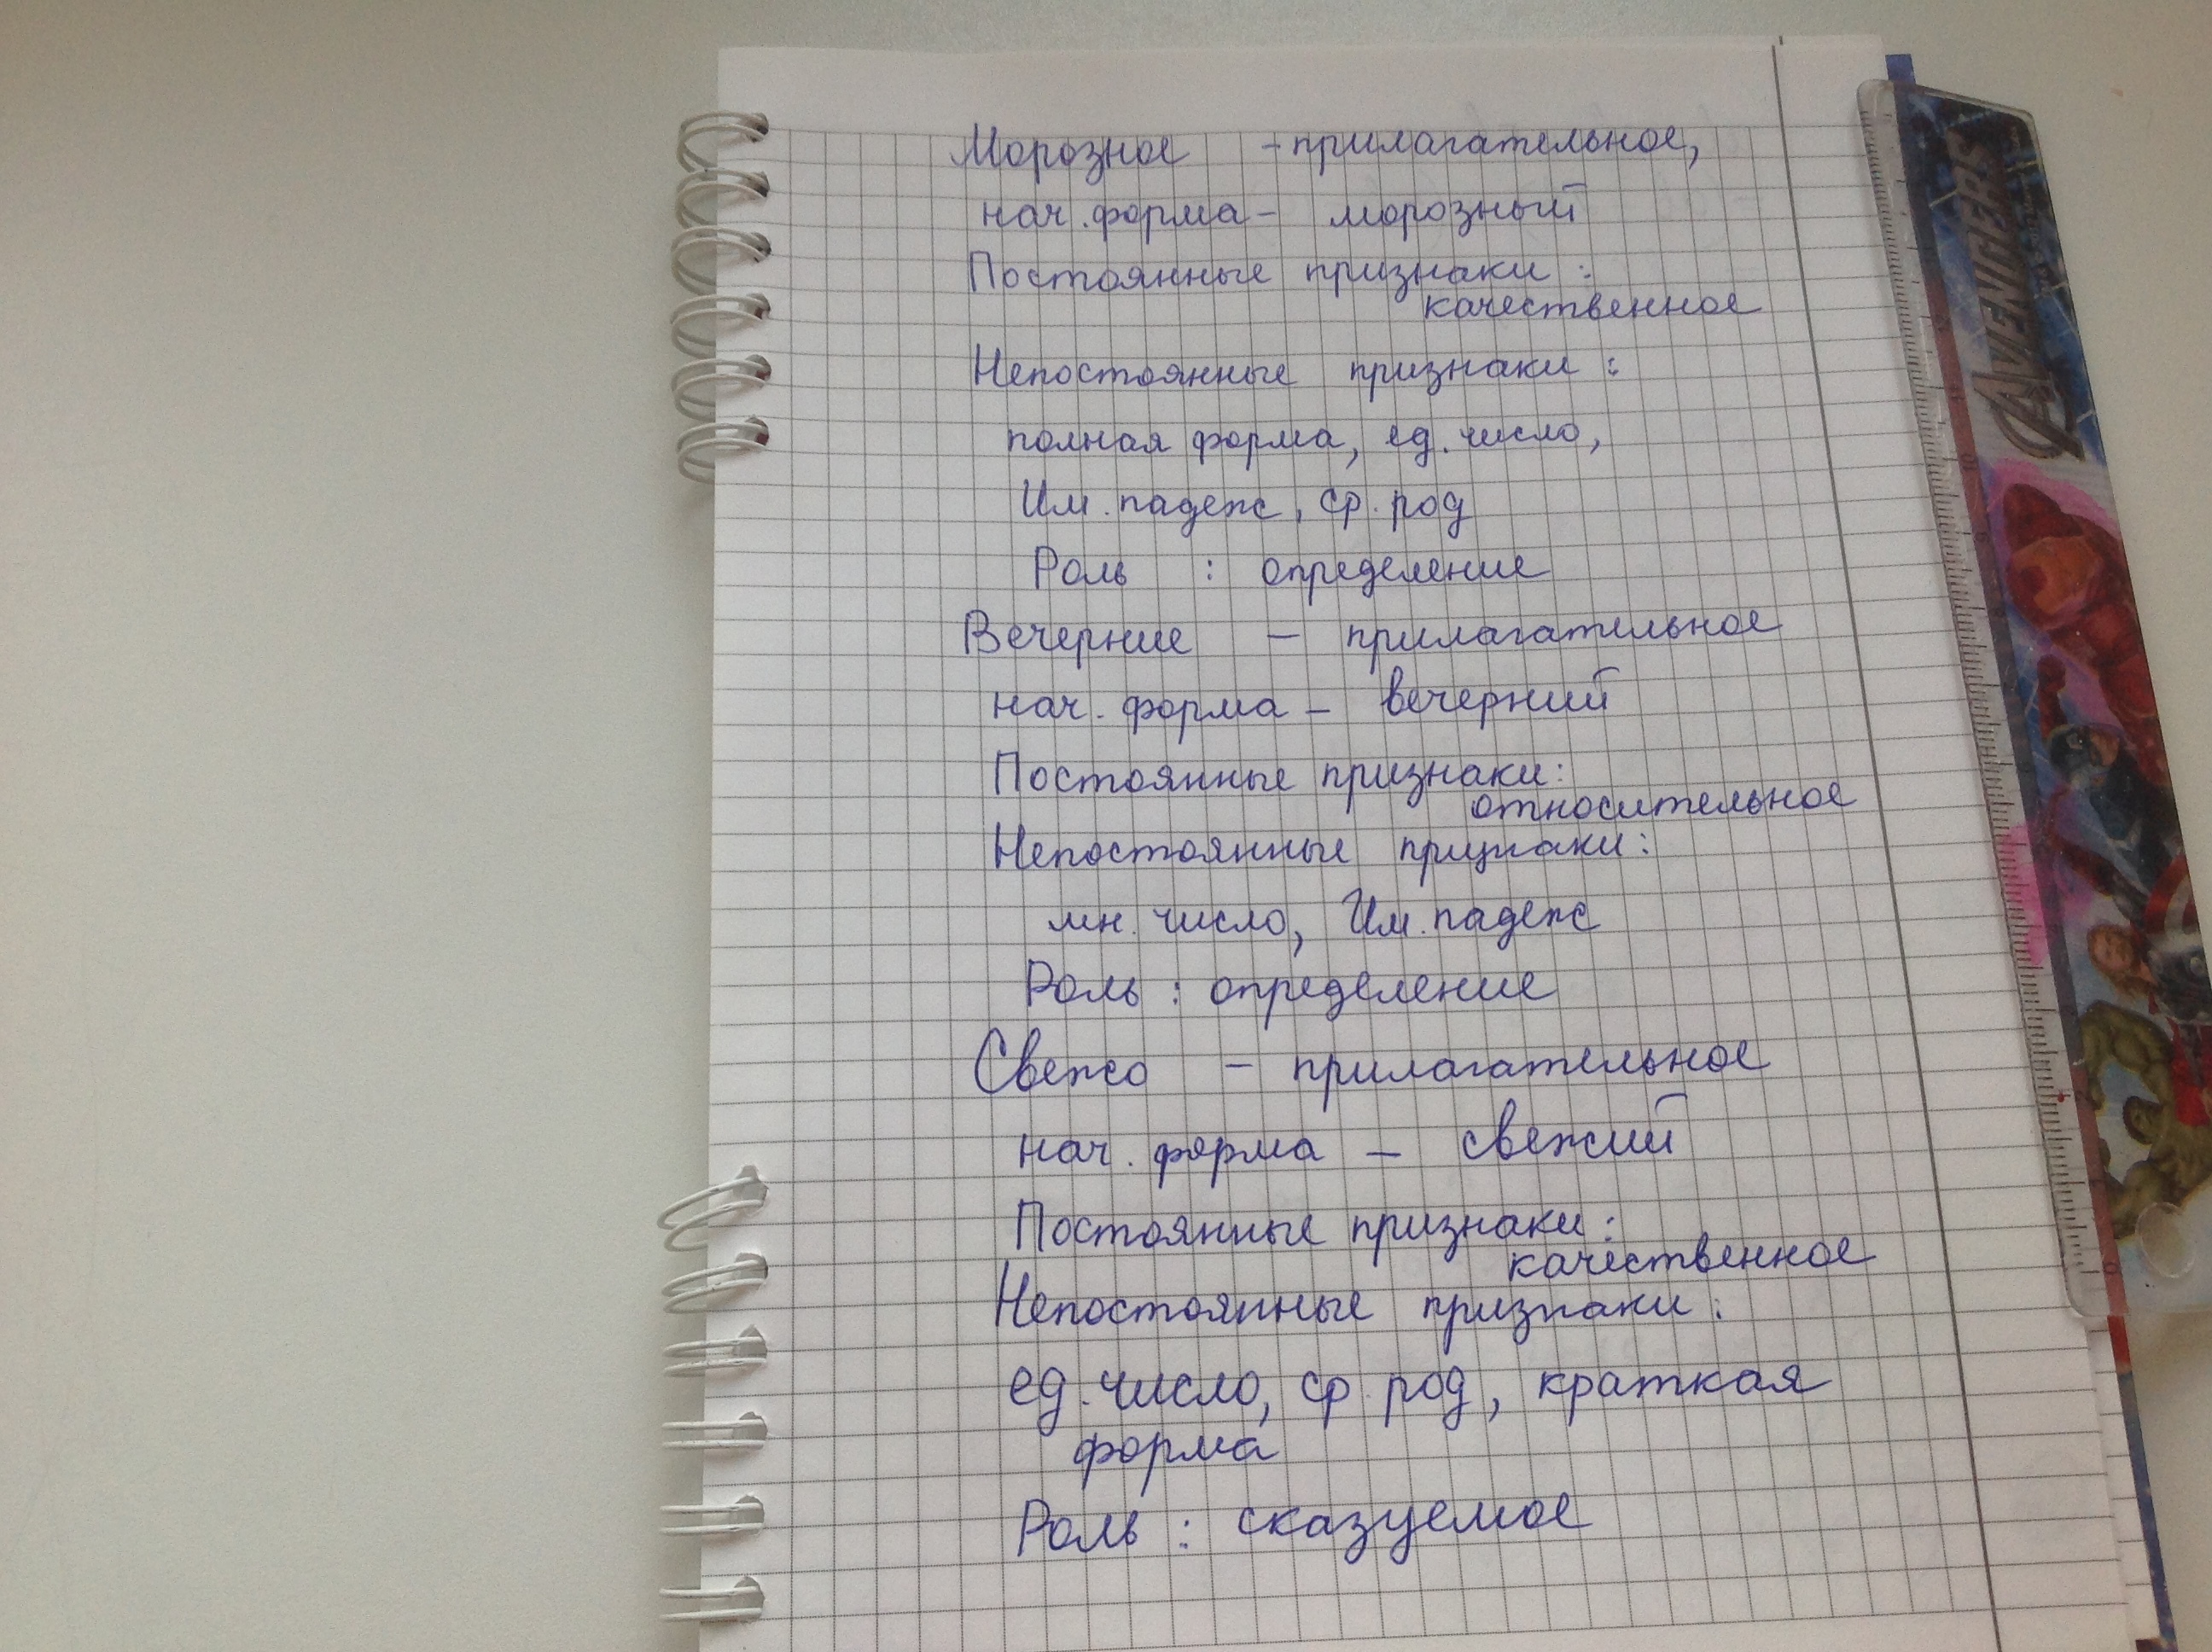 Морозное - прилагательное,
нач. форма - морозный
Постоянные признаки:
качественное
Непостоянные признаки:
полная форма, ед. число,
Им. падеж, ср. род
Роль : определение
Вечерние - прилагательное
нач. форма - вечерний
Постоянные признаки:
относительное
Непостоянные признаки:
мн. число, Им. падеж
Роль : определение
Свежо - прилагательное
нач. форма - свежий
Постоянные признаки:
качественное
Непостоянные признаки:
ед. число, ср. род, краткая
форма
Роль : сказуемое
AVENGERS